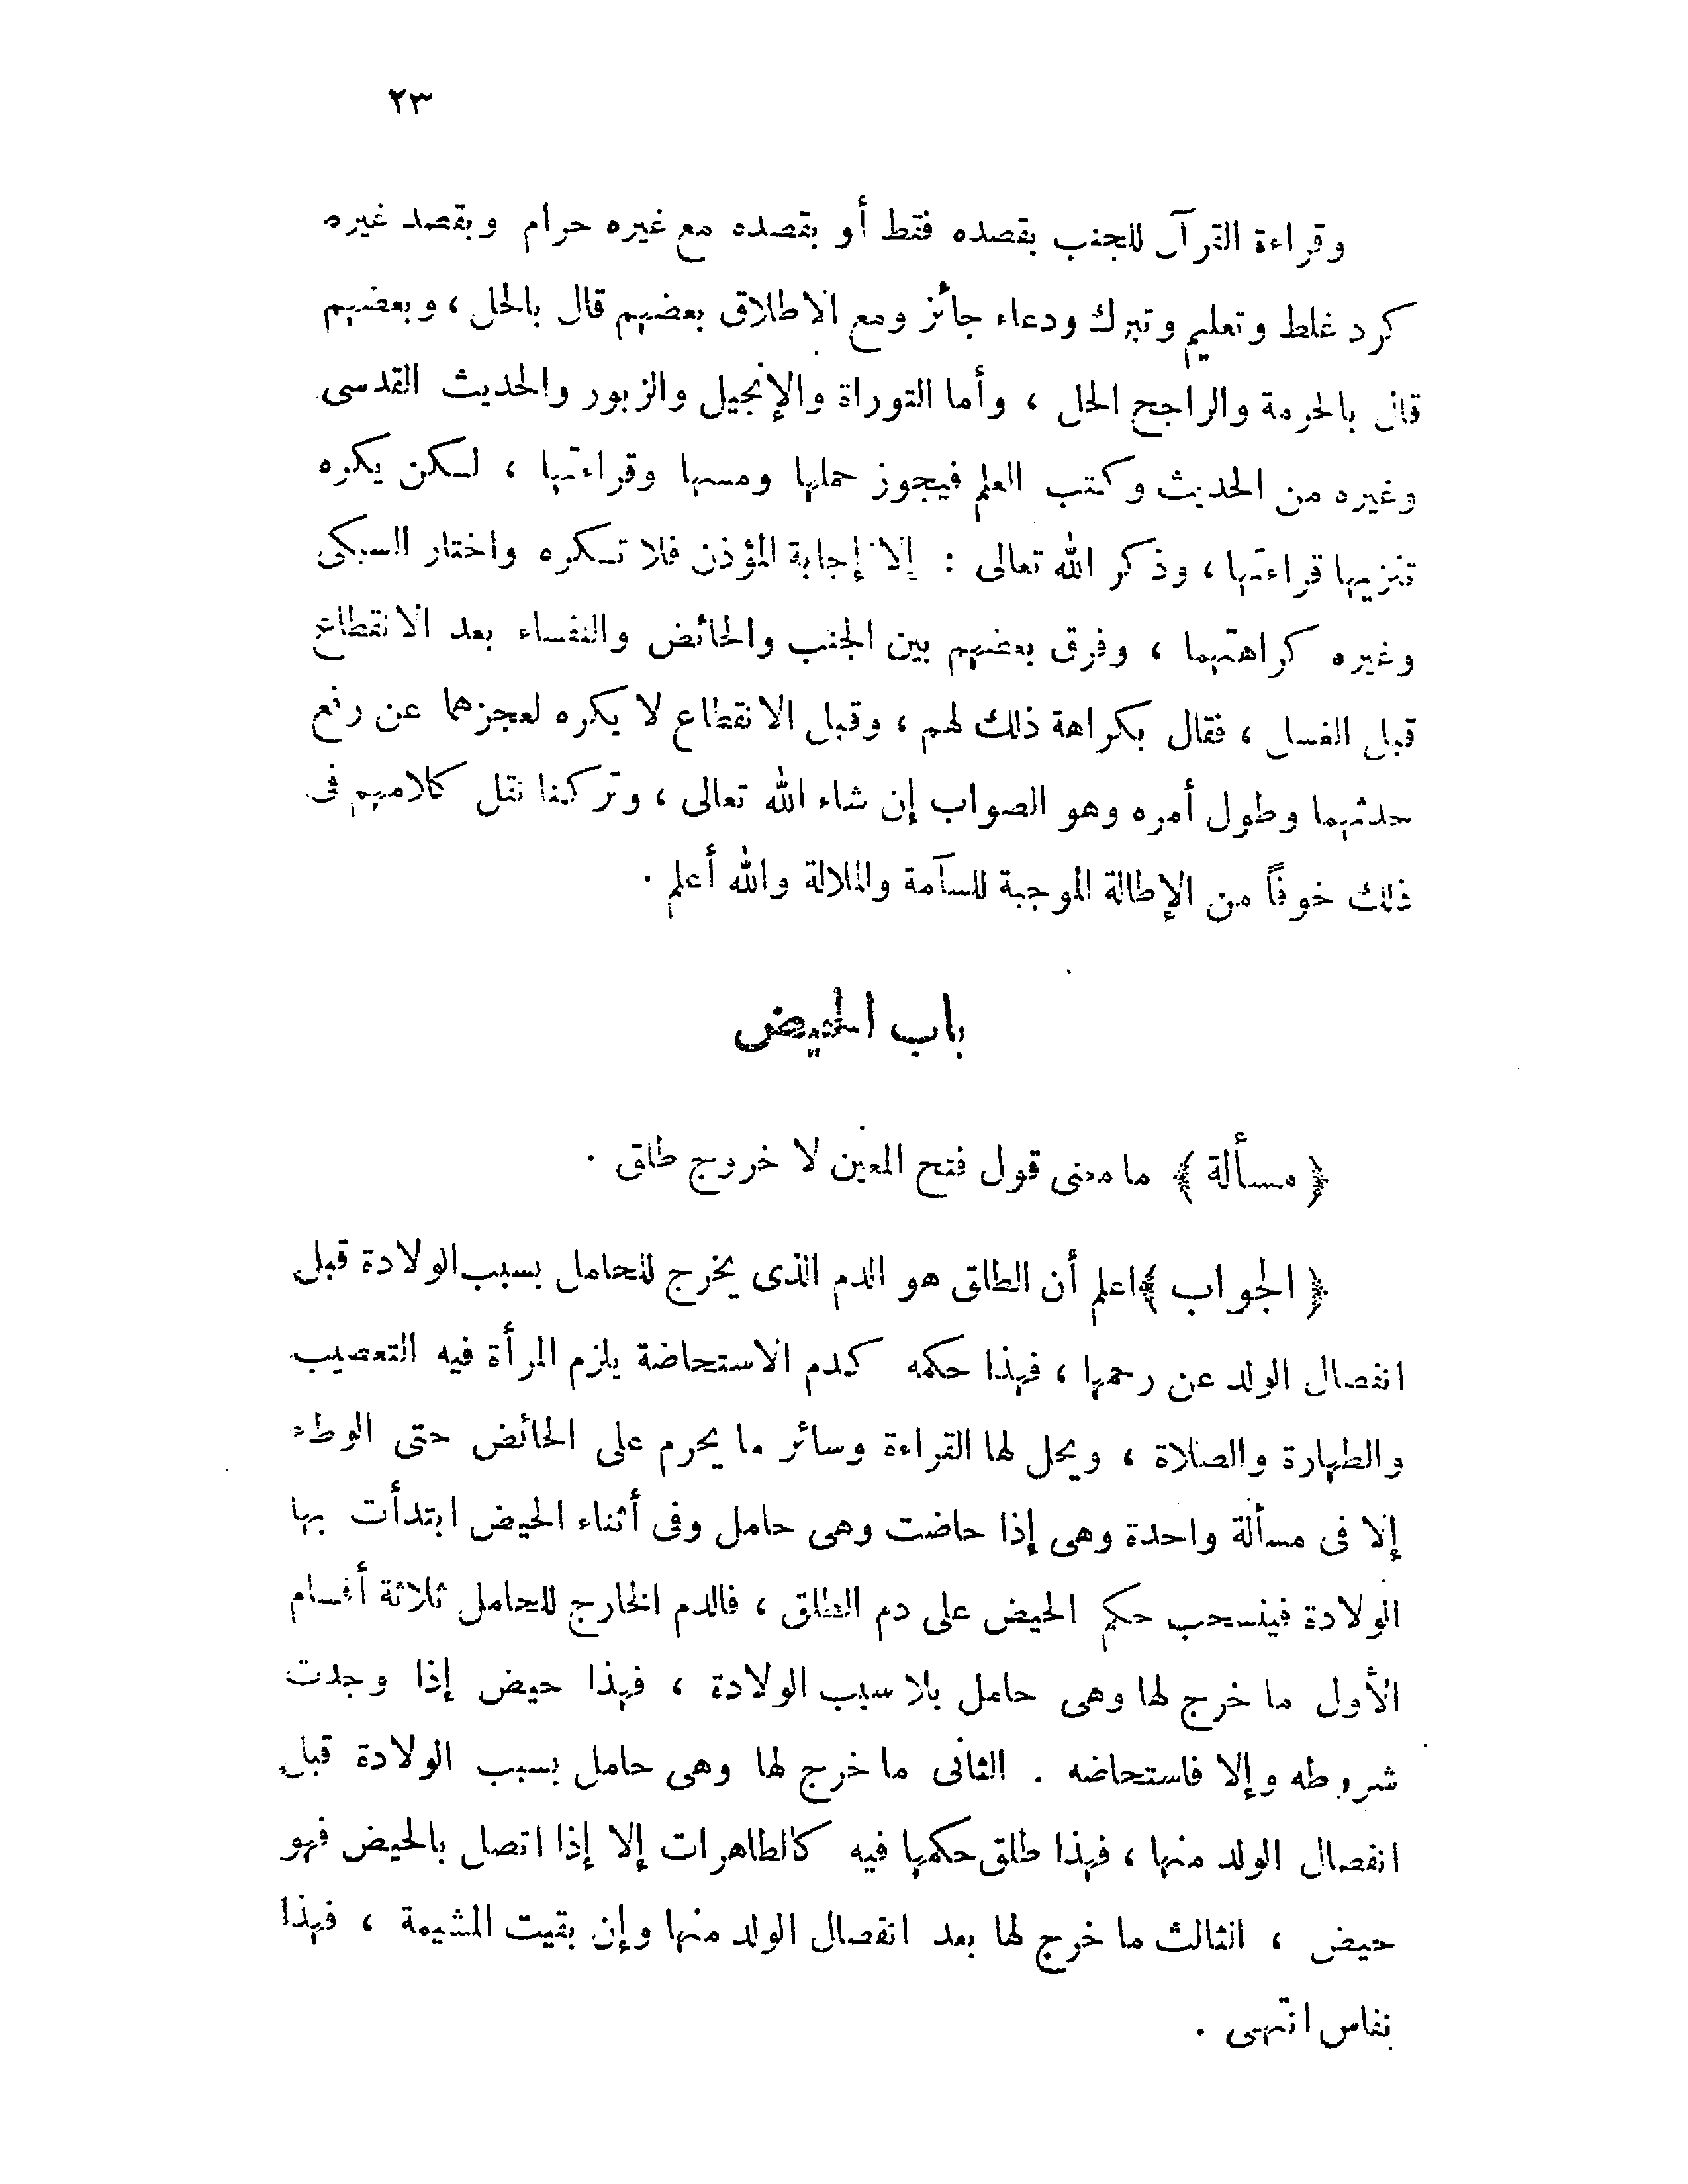 ٢٣
وقراءة القرآن للجنب بقصده فقط أو بقصده مع غيره حرام وبقصد غيره
كرد غلط وتعليم وتبرك ودعاء جائز ومع الاطلاق بعضهم قال بالحل ، وبعضهم
قال بالحرمة والراجح الحل ، وأما التوراة والإنجيل والزبور والحديث القدسى
وغيره من الحديث وكتب العلم فيجوز حملها ومسها وقراءتها ، لكن يكره
تنزيها قراءتها ، وذكر الله تعالى : إلا إجابة المؤذن فلا تكره واختار السبكى
وغيره كراهتهما ، وفرق بعضهم بين الجنب والحائض والنفساء بعد الانقطاع
قبل الغسل ، فقال بكراهة ذلك لهم ، وقبل الانقطاع لا يكره لعجزهما عن رفع
حدثهما وطول أمره وهو الصواب إن شاء الله تعالى ، وتركنا نقل كلامهم فى
ذلك خوفاً من الإطالة الموجبة للسآمة والملالة والله أعلم .
باب الحيض
﴿ مسألة ﴾ ما معنى قول فتح المعين لا خروج طلق .
﴿ الجواب ﴾ اعلم أن الطلق هو الدم الذى يخرج للحامل بسبب الولادة قبل
انفصال الولد عن رحمها ، فهذا حكمه كدم الاستحاضة يلزم المرأة فيه التعصيب
والطهارة والصلاة ، ويحل لها القراءة وسائر ما يحرم على الحائض حتى الوطء
إلا فى مسألة واحدة وهى إذا حاضت وهى حامل وفى أثناء الحيض ابتدأت بها
الولادة فينسحب حكم الحيض على دم الطلق ، فالدم الخارج للحامل ثلاثة أقسام
الأول ما خرج لها وهى حامل بلا سبب الولادة ، فهذا حيض إذا وجدت
شروطه وإلا فاستحاضه . الثانى ما خرج لها وهى حامل بسبب الولادة قبل
انفصال الولد منها ، فهذا طلق حكمها فيه كالطاهرات إلا إذا اتصل بالحيض فهو
حيض ، الثالث ما خرج لها بعد انفصال الولد منها وإن بقيت المشيمة ، فهذا
نفاس انتهى .